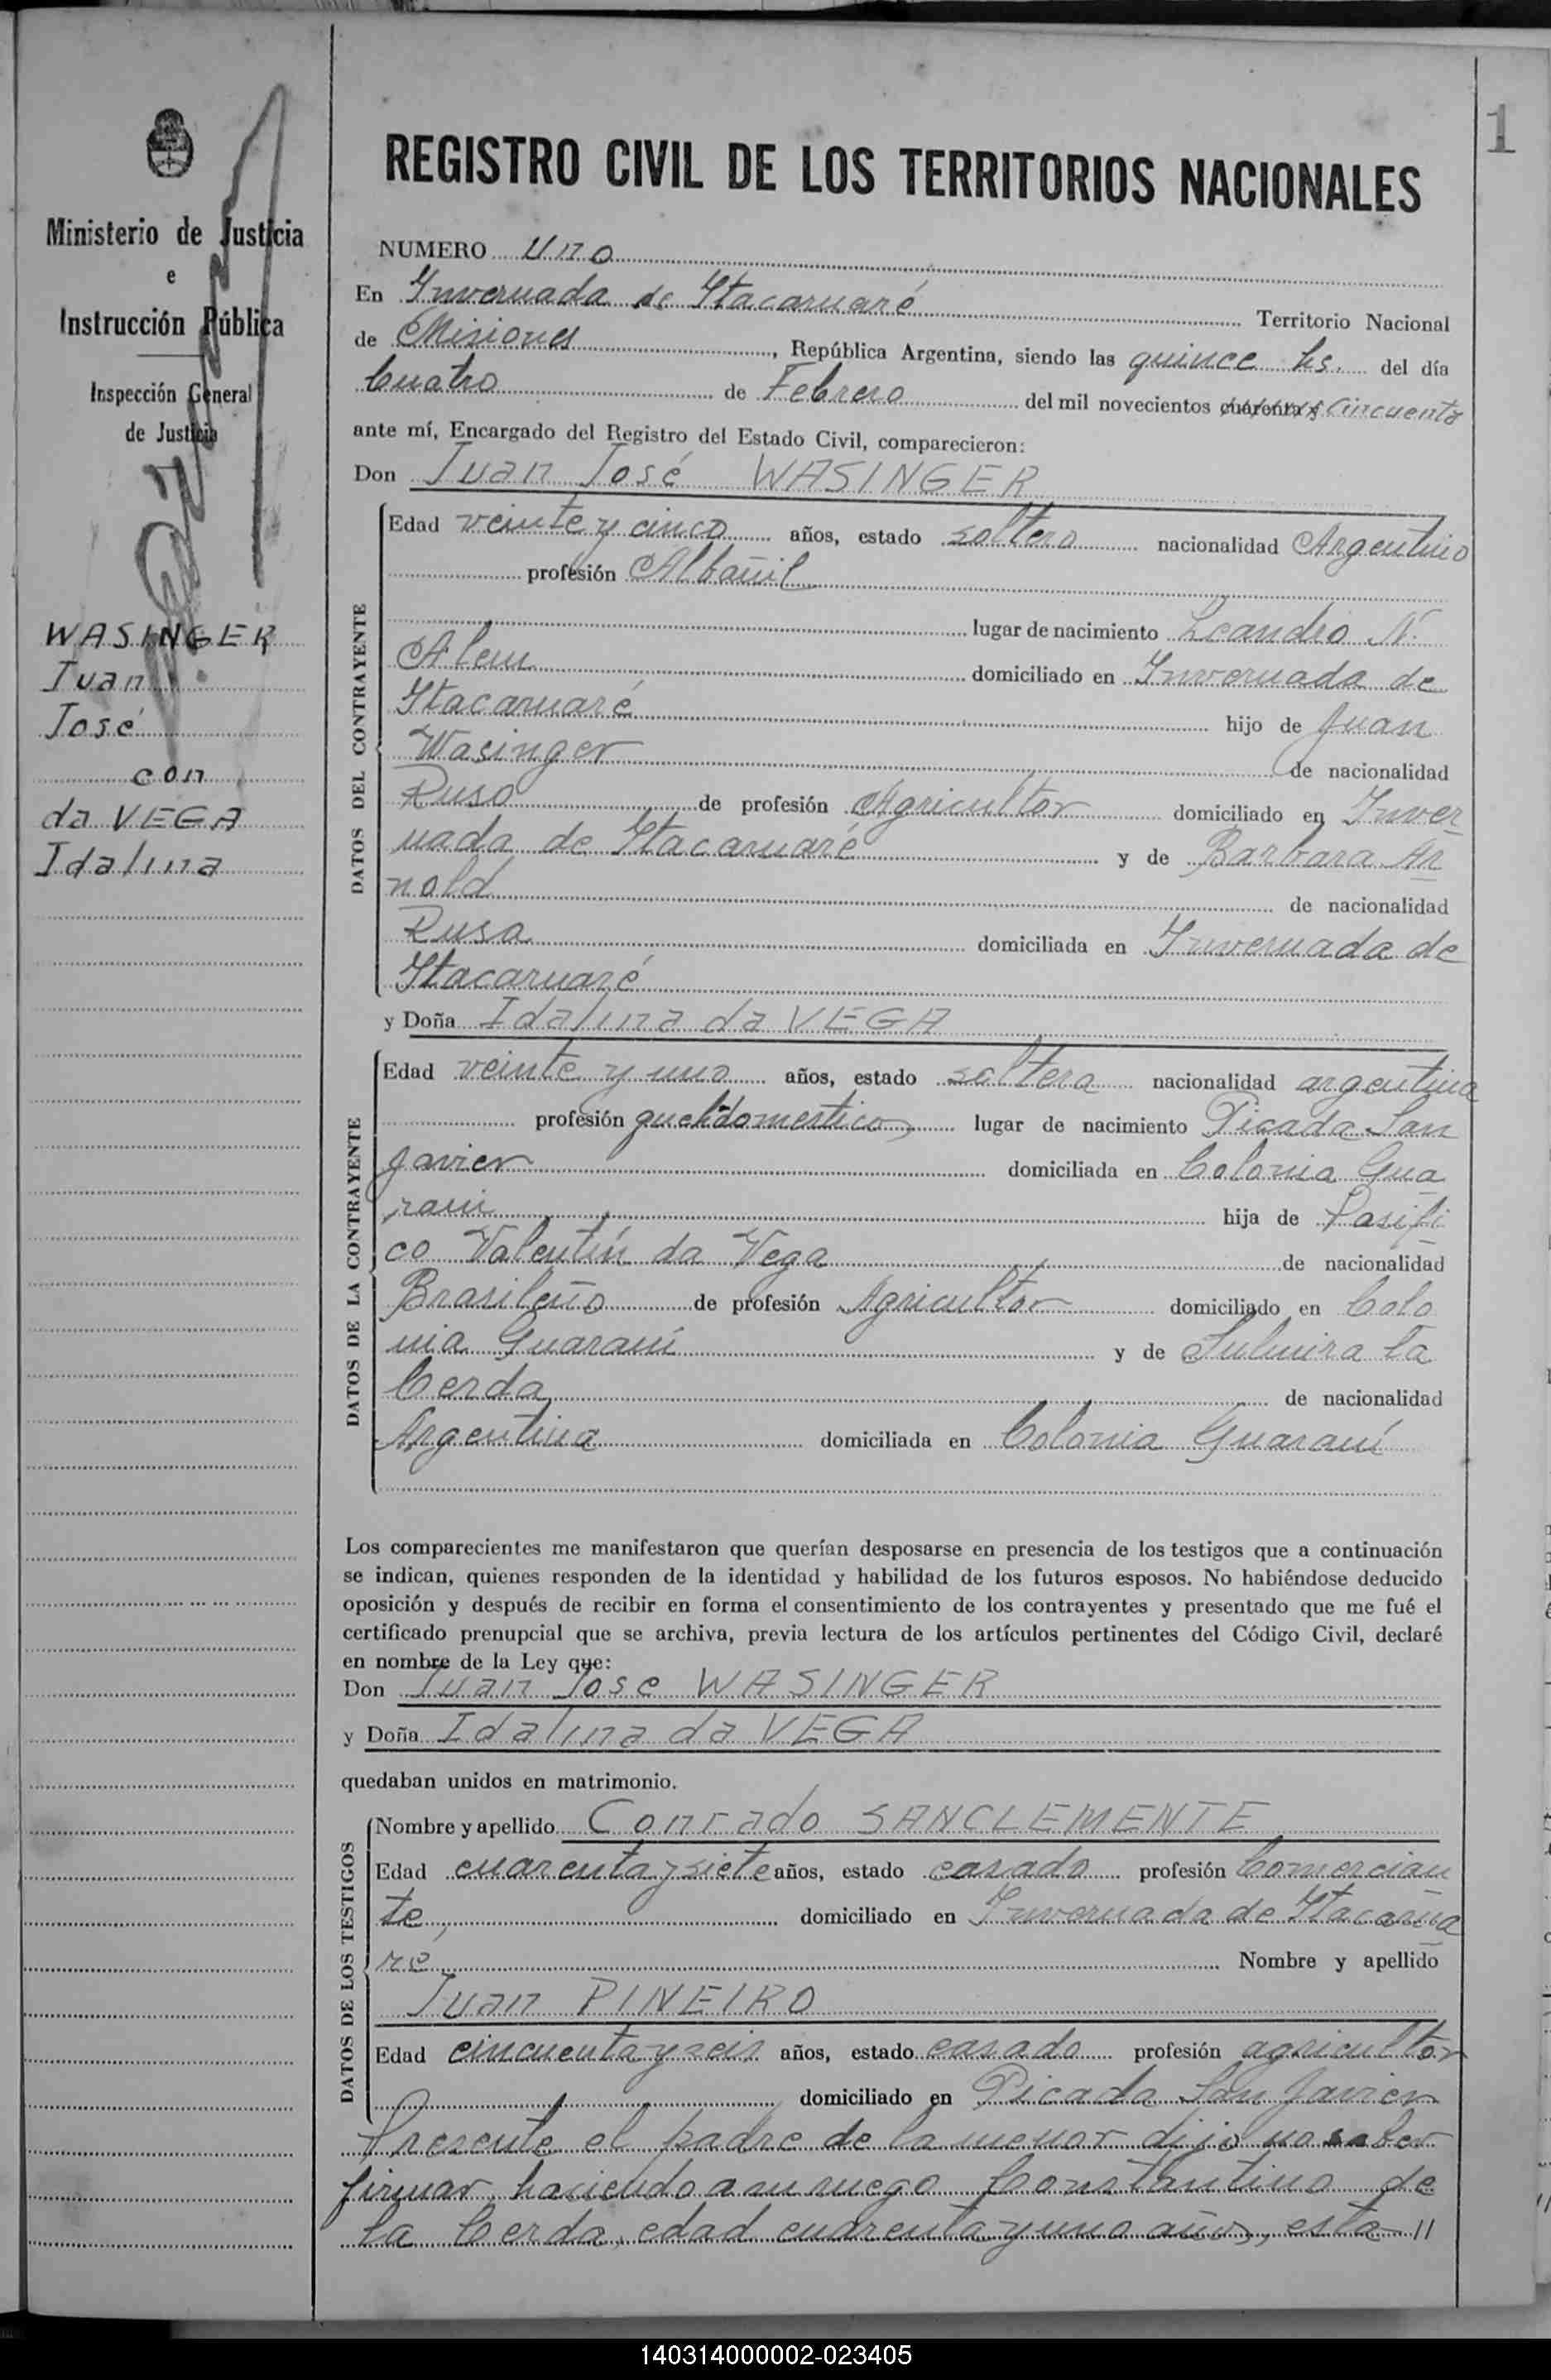 1
REGISTRO CIVIL DE LOS TERRITORIOS NACIONALES
Ministerio de Justicia
e
Instrucción Pública
Inspección General
de Justicia
WASINGER
Juan
José
con
da VEGA
Idalina
NUMERO Uno
En Invernada de Itacaruaré Territorio Nacional
de Misiones, República Argentina, siendo las quince hs. del día
Cuatro de Febrero del mil novecientos cuarenta y Cincuenta
ante mí, Encargado del Registro del Estado Civil, comparecieron:
Don Juan José WASINGER
DATOS DEL CONTRAYENTE
Edad veinte y cinco años, estado soltero nacionalidad Argentino
profesión Albañil
lugar de nacimiento Leandro N.
Alem domiciliado en Invernada de
Itacaruaré hijo de Juan
Wasinger de nacionalidad
Ruso de profesión Agricultor domiciliado en Inver
nada de Itacaruaré y de Barbara Ar
nold de nacionalidad
Rusa domiciliada en Invernada de
Itacaruaré
y Doña Idalina da VEGA
DATOS DE LA CONTRAYENTE
Edad veinte y uno años, estado soltera nacionalidad argentina
profesión quehdomesticos lugar de nacimiento Picada San
Javier domiciliada en Colonia Gua
rani hija de Pasifi
co Valentín da Vega de nacionalidad
Brasileño de profesión Agricultor domiciliado en Colo
nia Guaraní y de Sulmira la
Cerda de nacionalidad
Argentina domiciliada en Colonia Guaraní
Los comparecientes me manifestaron que querían desposarse en presencia de los testigos que a continuación
se indican, quienes responden de la identidad y habilidad de los futuros esposos. No habiéndose deducido
oposición y después de recibir en forma el consentimiento de los contrayentes y presentado que me fué el
certificado prenupcial que se archiva, previa lectura de los artículos pertinentes del Código Civil, declaré
en nombre de la Ley que:
Don Juan Jose WASINGER
y Doña Idalina da VEGA
quedaban unidos en matrimonio.
DATOS DE LOS TESTIGOS
Nombre y apellido Conrado SANCLEMENTE
Edad cuarenta y siete años, estado casado profesión Comercian
te, domiciliado en Invernada de Itacarua
ré Nombre y apellido
Juan PINEIRO
Edad cincuenta y seis años, estado casado profesión agricultor
domiciliado en Picada San Javier
Presente el padre de la menor dijo no saber
firmar, haciendo a su ruego Constantino de
la Cerda, edad cuarenta y uno años, esta //
140314000002-023405